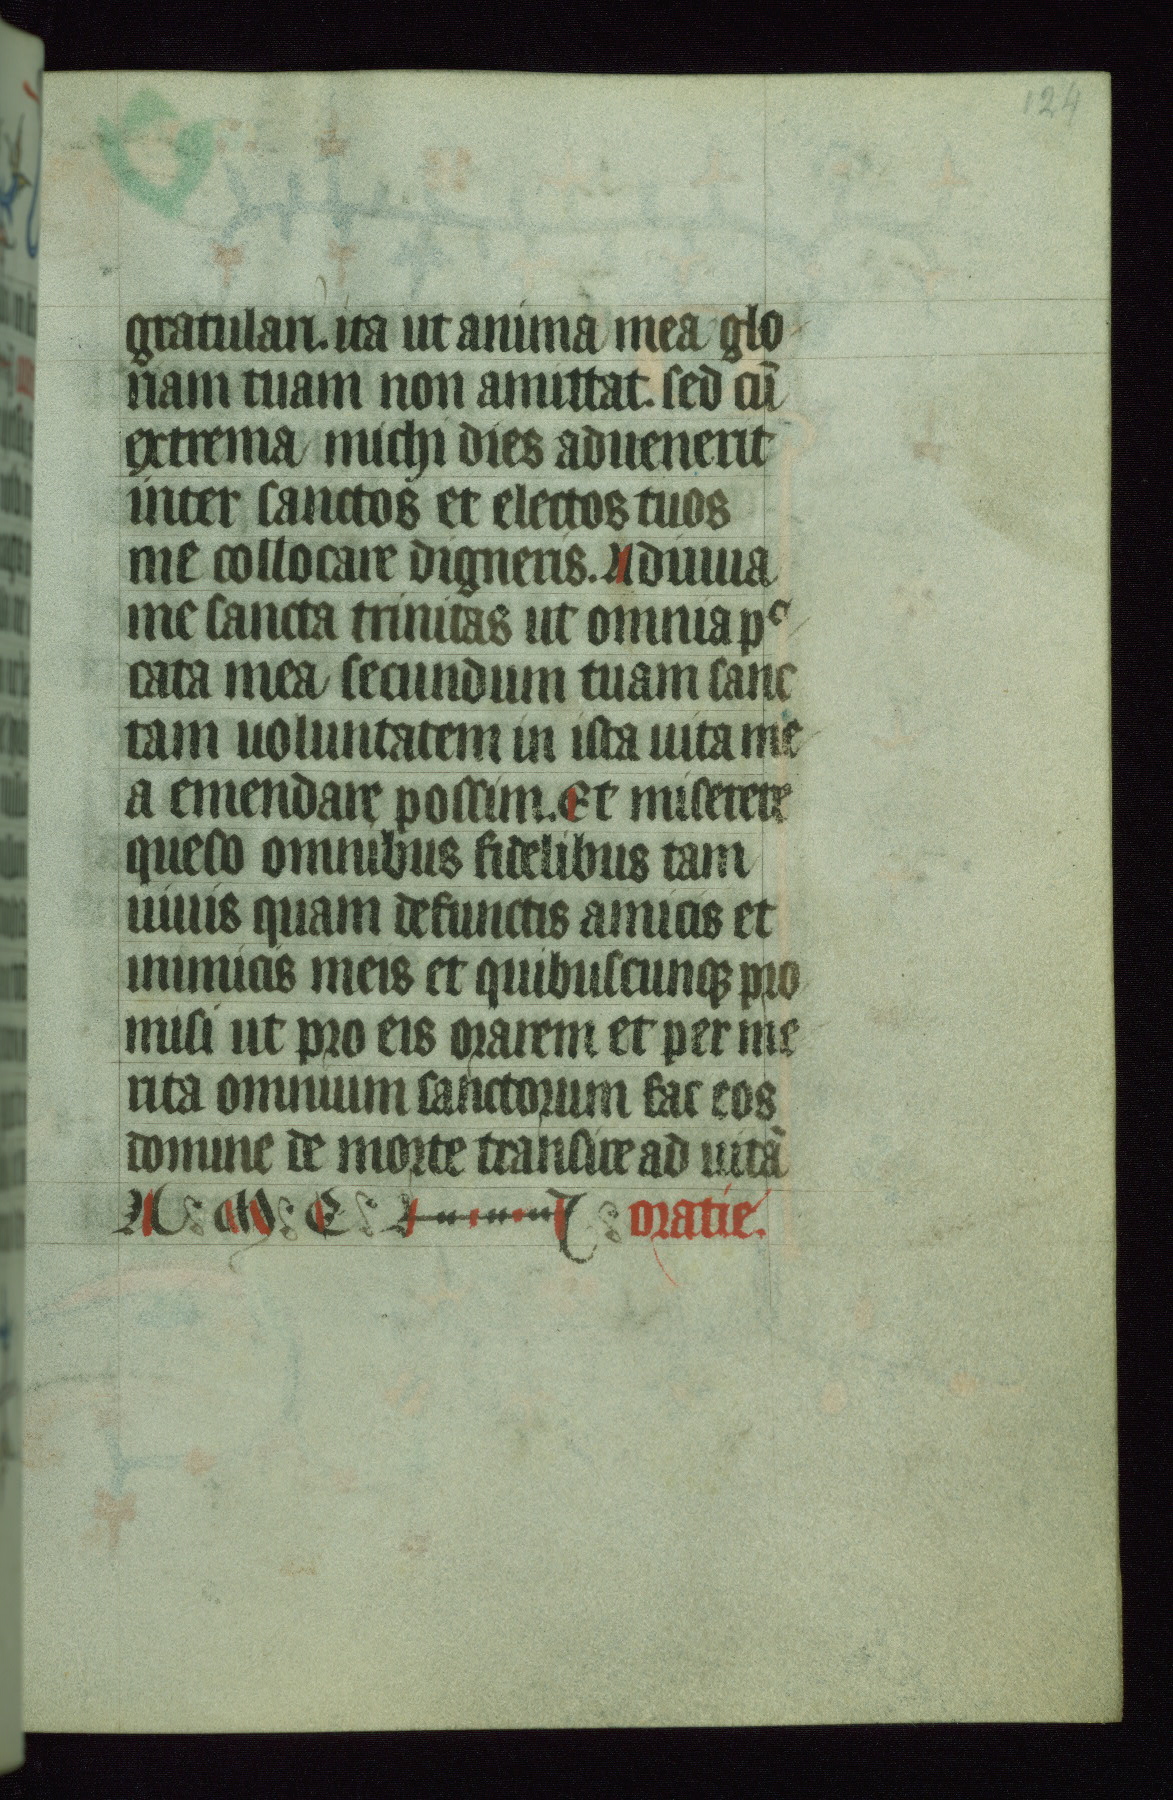 124
gratulari. ita ut anima mea glo
riam tuam non amittat. sed cū
extrema michi dies aduenerit
inter sanctos et electos tuos
me collocare digneris. Adiuua
me sancta trinitas ut omnia pᶜ
cata mea secundum tuam sanc
tam uoluntatem in ista uita me
a emendare possim. Et miserere
queso omnibus fidelibus tam
uiuis quam defunctis amicis et
inimicis meis et quibuscunqꝫ pro
misi ut pro eis orarem et per me
rita omnium sanctorum fac eos
domine de morte transire ad uitā
oratie.